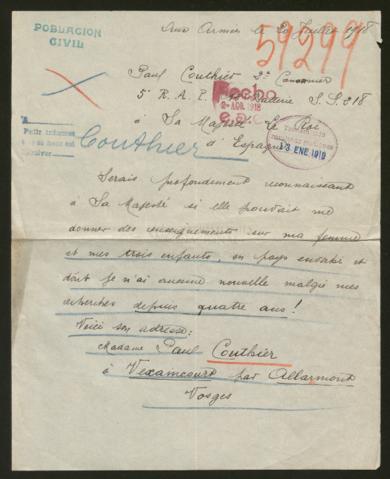 POBLACION
CIVIL
Aux Armées le 20 Juillet 1918
59299
Paul Couthier 2e Canonnier
5e R. A. P. Batterie S. P. 218
Hecho
2- AGO. 1918
à Sa Majesté Le Roi
d'Espagne
13 ENE. 1919
Pedir informes
Couthier
Serais profondément reconnaissant
à Sa Majesté si elle pouvait me
donner des renseignements sur ma femme
et mes trois enfants, en pays envahi et
dont je n'ai aucune nouvelle malgré mes
recherches depuis quatre ans!
Voici son adresse:
Madame Paul Couthier
à Vexaincourt par Allarmont
Vosges